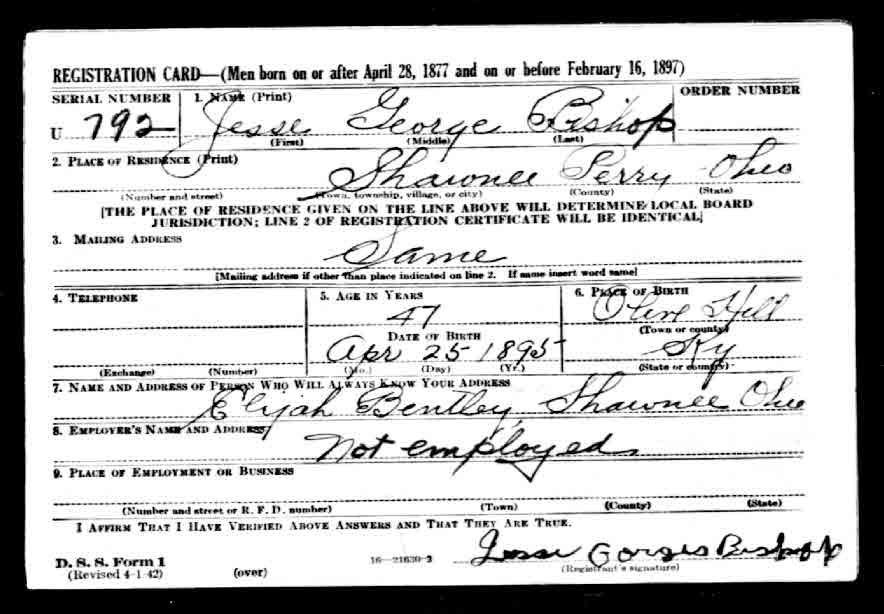 REGISTRATION CARD—(Men born on or after April 28, 1877 and on or before February 16, 1897)
SERIAL NUMBER 1. NAME (Print) ORDER NUMBER
U 792 Jesse George Bishop
(First) (Middle) (Last)
2. PLACE OF RESIDENCE (Print)
Shawnee Perry Ohio
(Number and street) (Town, township, village, or city) (County) (State)
[THE PLACE OF RESIDENCE GIVEN ON THE LINE ABOVE WILL DETERMINE LOCAL BOARD
JURISDICTION; LINE 2 OF REGISTRATION CERTIFICATE WILL BE IDENTICAL]
3. MAILING ADDRESS
Same
[Mailing address if other than place indicated on line 2. If same insert word same]
4. TELEPHONE 5. AGE IN YEARS 6. PLACE OF BIRTH
47 Olive Hill
DATE OF BIRTH (Town or county)
Apr 25 1895 Ky
(Exchange) (Number) (Mo.) (Day) (Yr.) (State or country)
7. NAME AND ADDRESS OF PERSON WHO WILL ALWAYS KNOW YOUR ADDRESS
Elijah Bentley, Shawnee Ohio
8. EMPLOYER'S NAME AND ADDRESS
Not employed
9. PLACE OF EMPLOYMENT OR BUSINESS
(Number and street or R. F. D. number) (Town) (County) (State)
I AFFIRM THAT I HAVE VERIFIED ABOVE ANSWERS AND THAT THEY ARE TRUE.
D. S. S. Form 1 16—21630-2 Jesse Gorges Bishop
(Revised 4-1-42) (over) (Registrant's signature)